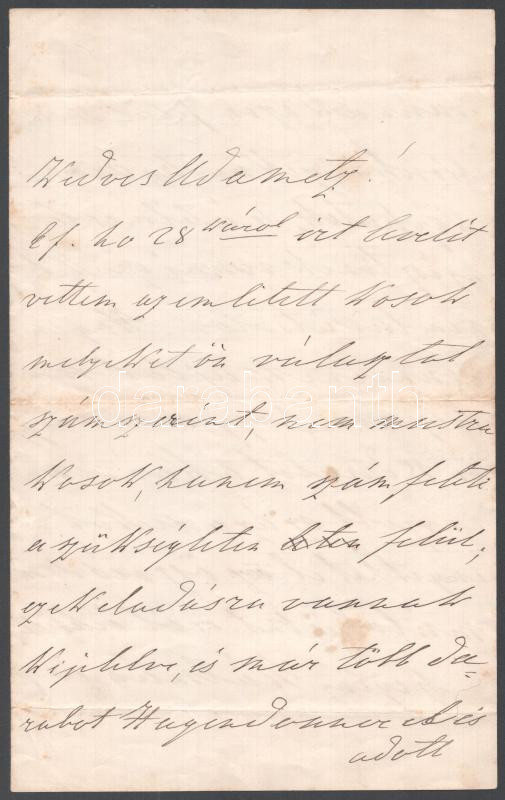 Kedves Adametz!
Ef. ho 28 káról irt levelit
vettem az emlitett Kosok
melyeket ön választot
számszerint, nem mustra
Kosok, hanem számfeleti
a szükségleten felül;
ezek eladásra vannak
Kijelelve, és már több da-
rabot Hagendonner el is
adott
darabanth